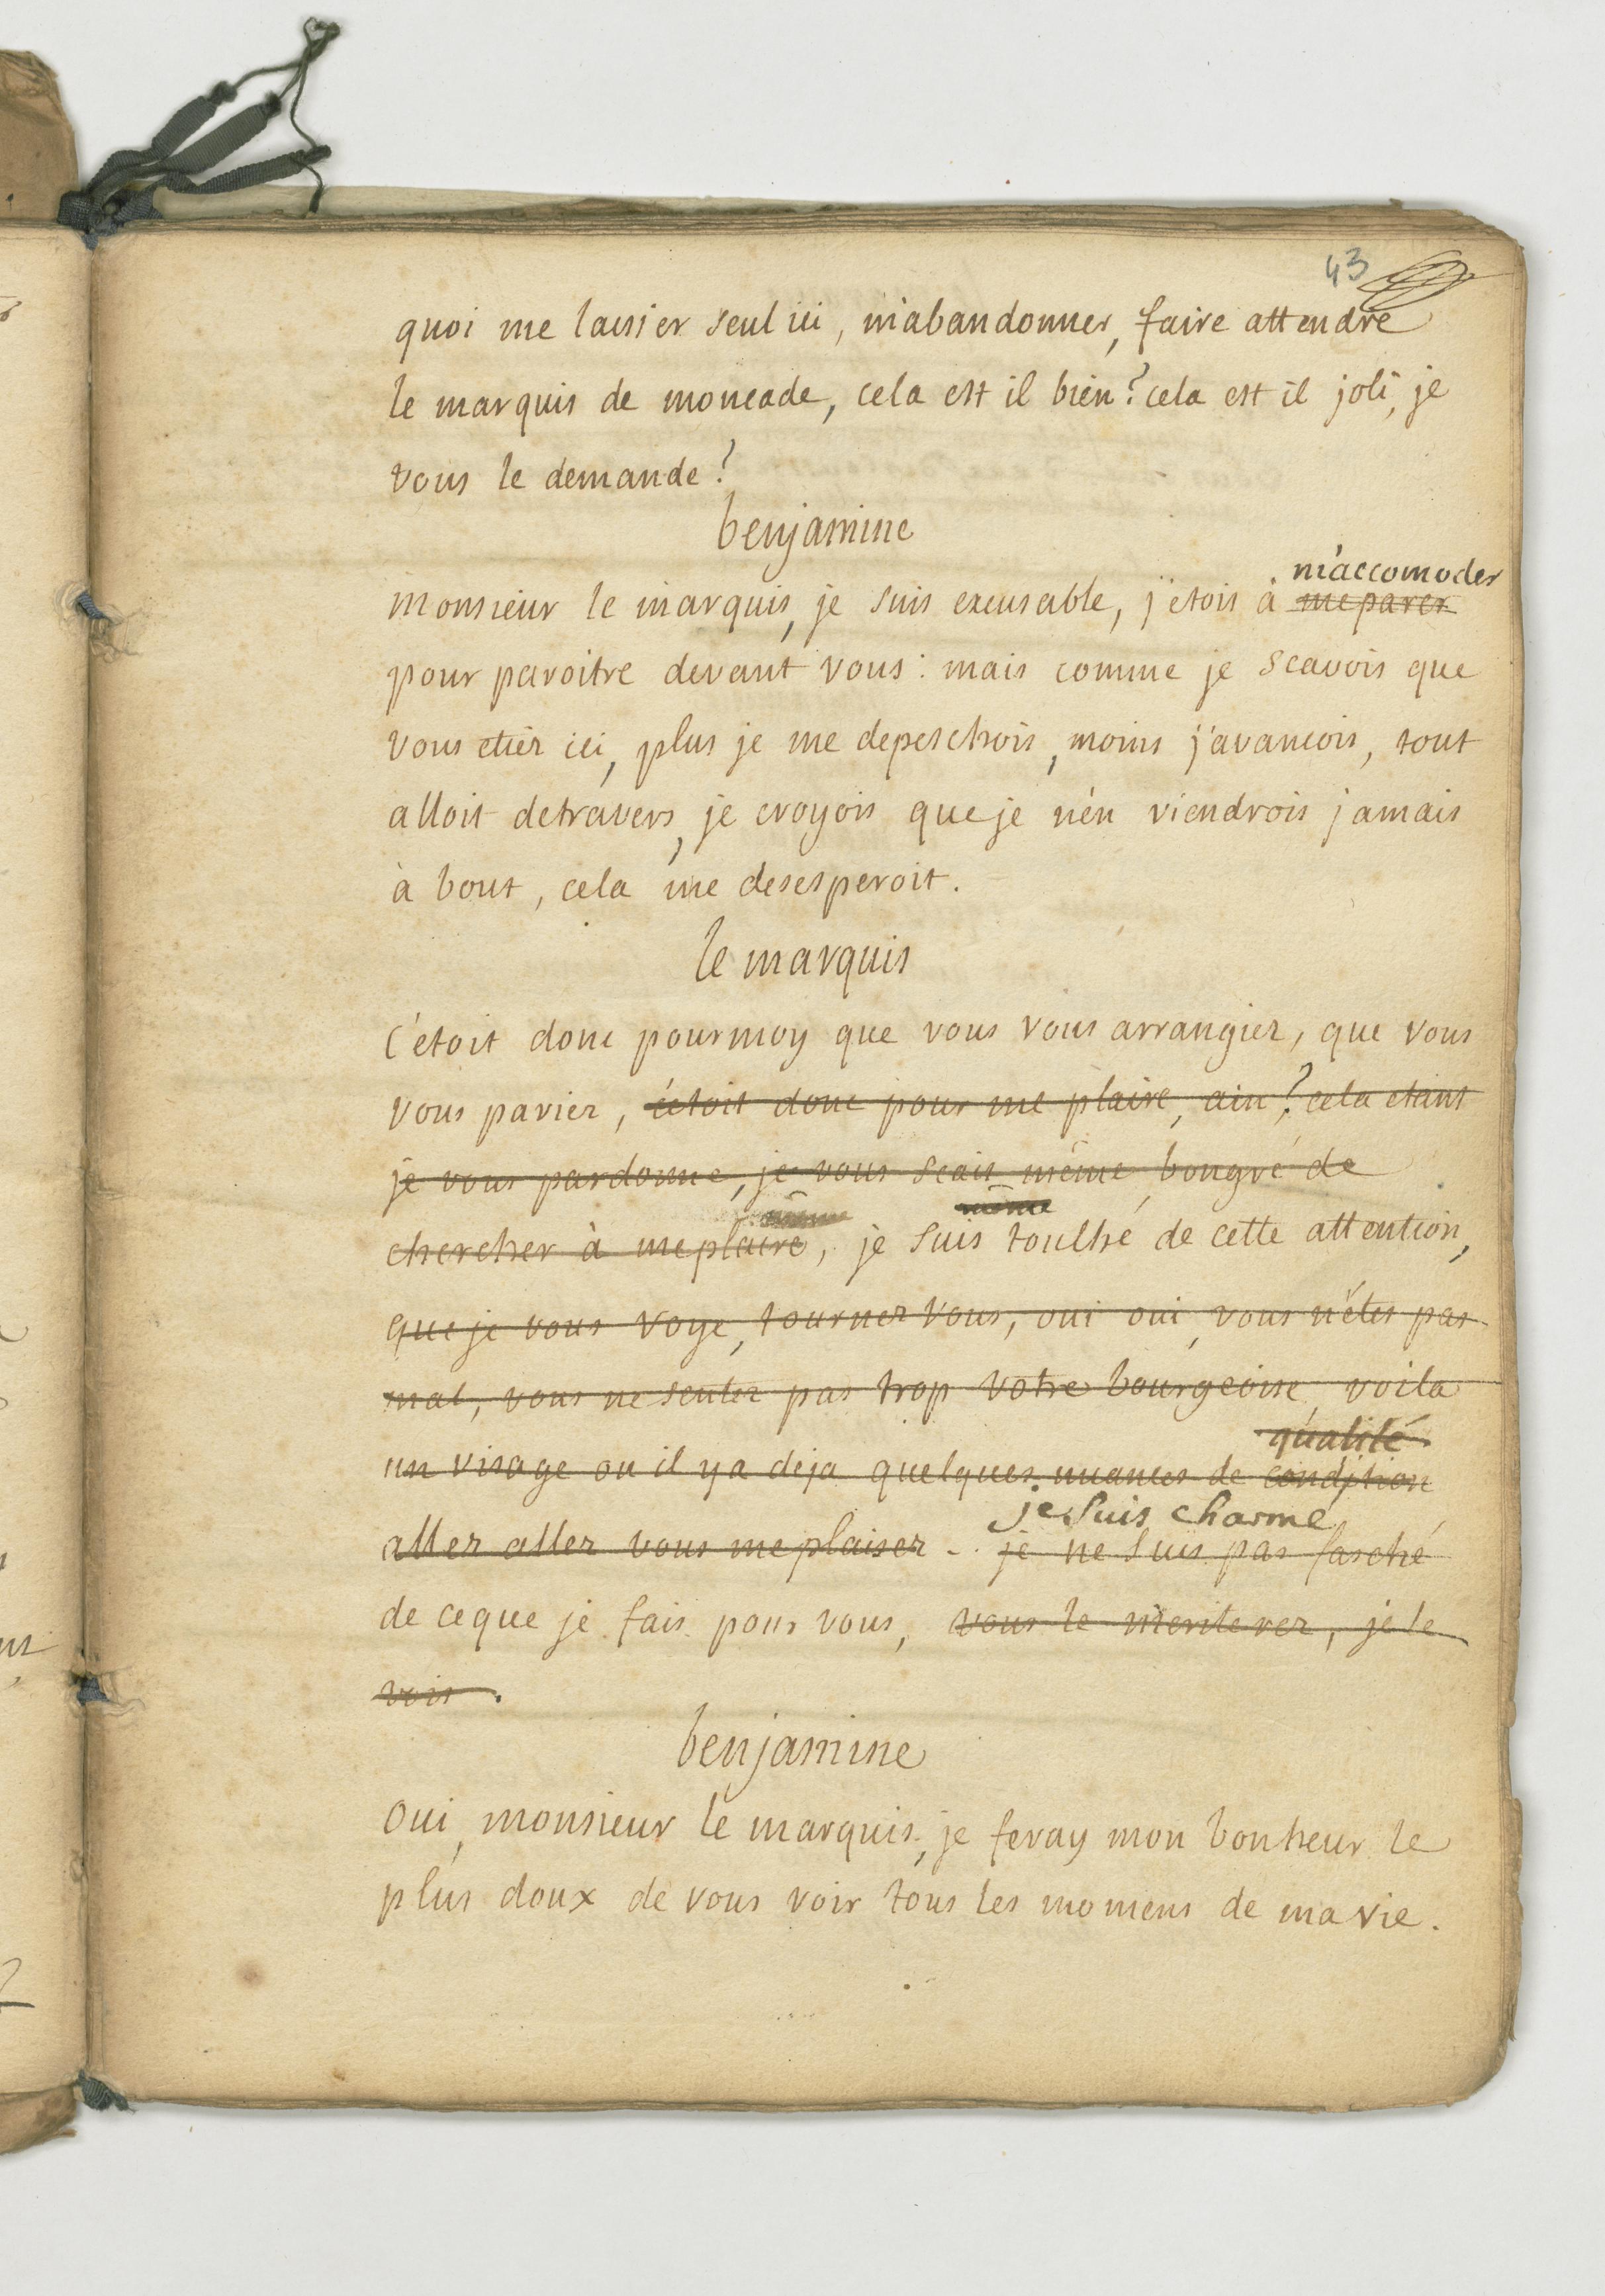 43
quoi me laisser seul ici, m'abandonner, faire attendre
le marquis de moncade, cela est il bien? cela est il joli, je
vous le demande?
benjamine
m'accomoder
monsieur le marquis, je suis excusable, j'etois à me parer
pour paroitre devant vous: mais comme je scavois que
vous etiez ici, plus je me depeschois, moins j'avancois, tout
alloit detravers, je croyois que je n'en viendrois jamais
à bout, cela me desesperoit.
le marquis
c'étoit donc pour moy que vous vous arrangiez, que vous
vous pariez, c'étoit donc pour me plaire, ain? cela etant
je vous pardonne, je vous scais même bongré de
même
chercher à me plaire, je suis touché de cette attention,
que je vous voye, tournez vous, oui oui, vous n'étes pas
mal, vous ne sentez pas trop votre bourgeoise, voila
qualité
un visage ou il y a deja quelques nuances de condition
je suis charmé
allez allez vous me plaisez - je ne suis pas fasché
de ceque je fais pour vous, vous le meriterez, je le
vois.
benjamine
oui, monsieur le marquis, je feray mon bonheur le
plus doux de vous voir tous les momens de ma vie.